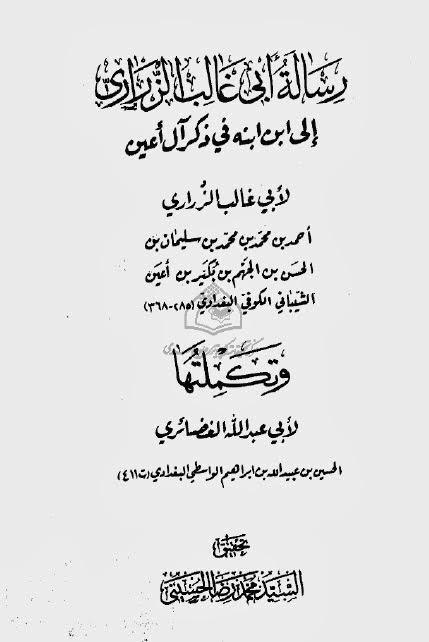 رِسَالَةُ أَبِي غَالِبٍ الزُّرَارِيِّ
إلى ابن ابنه في ذكر آل أعين
لأبي غالب الزُراري
أحمد بن محمد بن محمد بن سليمان بن
الحسن بن الجَهْم بن بُكَيْر بن أعين
الشيباني الكوفي البغدادي (٢٨٥-٣٦٨)
وَتَكْمِلَتُهَا
لأبي عبدالله الغضائري
الحسين بن عبيدالله بن ابراهيم الواسطي البغدادي (ت٤١١)
تحقيق
السَّيِّد مُحَمَّد رِضَا الحُسَيْنِيّ